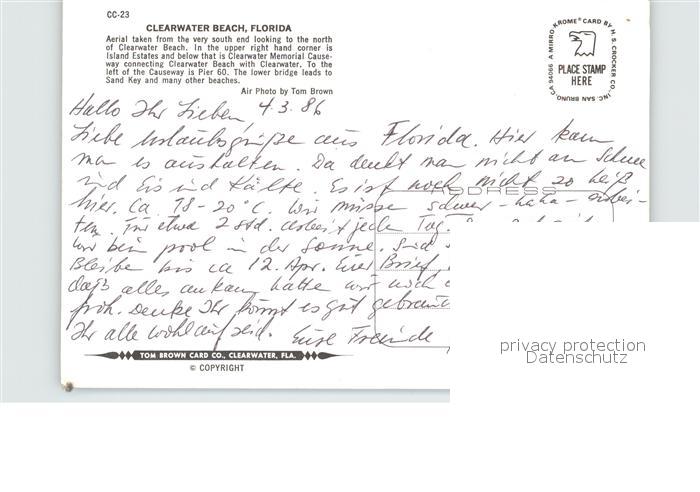 CC-23
CLEARWATER BEACH, FLORIDA
Aerial taken from the very south end looking to the north
of Clearwater Beach. In the upper right hand corner is
Island Estates and below that is Clearwater Memorial Cause-
way connecting Clearwater Beach with Clearwater. To the
left of the Causeway is Pier 60. The lower bridge leads to
Sand Key and many other beaches.
Air Photo by Tom Brown
A MIRRO-KROME® CARD BY H. S. CROCKER CO., INC., SAN BRUNO, CA 94066
PLACE STAMP
HERE
ADDRESS
Hallo Ihr Lieben, 4.3.86
Liebe Urlaubsgrüße aus Florida. Hier kann
man es aushalten. Da denkt man nicht an Schnee
und Eis und Kälte. Es ist noch nicht so heiß
hier. Ca. 18-20°C. Wir müssen schwer - haha - arbei-
ten. für etwa 2 Std. Arbeit jeden Tag.
wir beim pool in der Sonne. Sind
Bleibe bis ca 12. Apr. Euer Brief
daß alles ankam hatte wir noch
froh. Denke Ihr könnt es gut gebrauch
Ihr alle wohlauf seid. Eure Freunde
TOM BROWN CARD CO., CLEARWATER, FLA.
© COPYRIGHT
privacy protection
Datenschutz